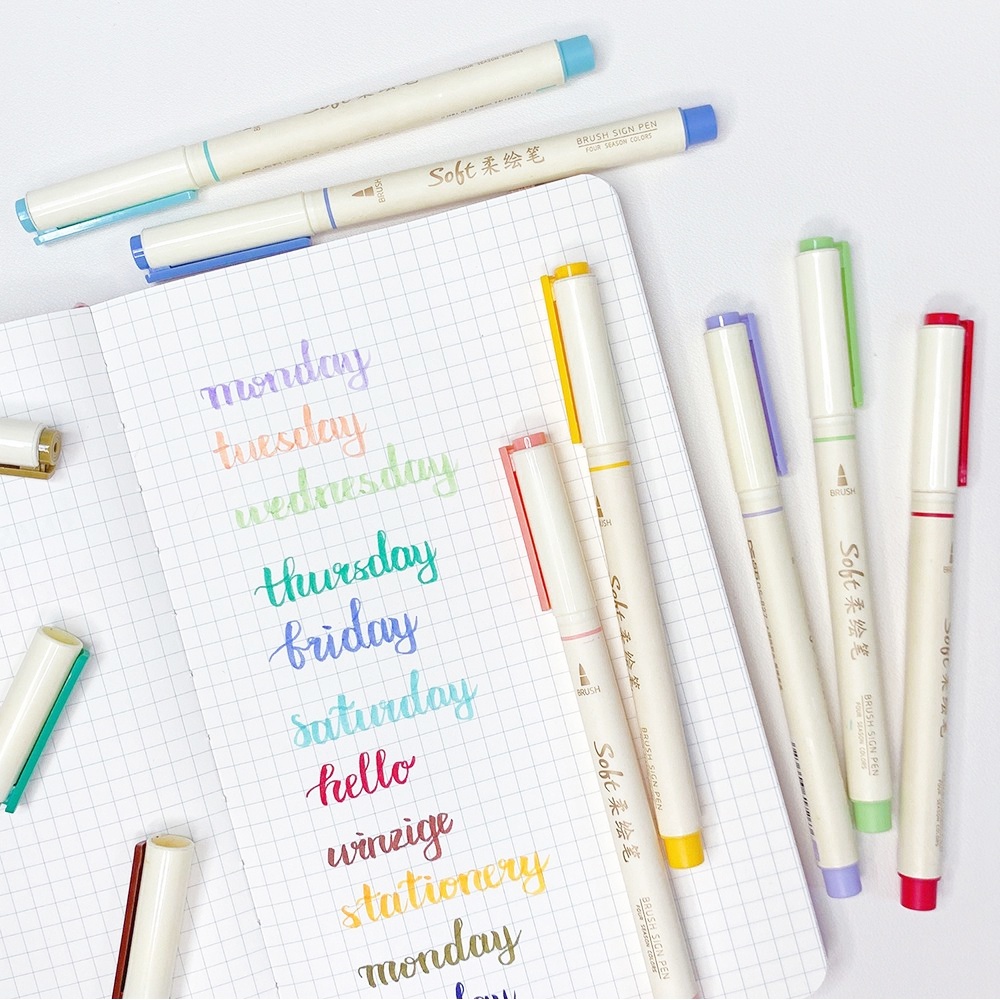 Soft 柔绘笔
BRUSH SIGN PEN
FOUR SEASON COLORS
BRUSH
Soft 柔绘笔
monday
tuesday
wednesday
thursday
friday
saturday
hello
winzige
stationery
monday
BRUSH
Soft 柔绘笔
BRUSH SIGN PEN
FOUR SEASON COLORS
Soft 柔绘笔
BRUSH SIGN PEN
BRUSH
Soft 柔绘笔
BRUSH SIGN PEN
FOUR SEASON COLORS
Soft 柔绘笔
BRUSH SIGN PEN
FOUR SEASON COLORS